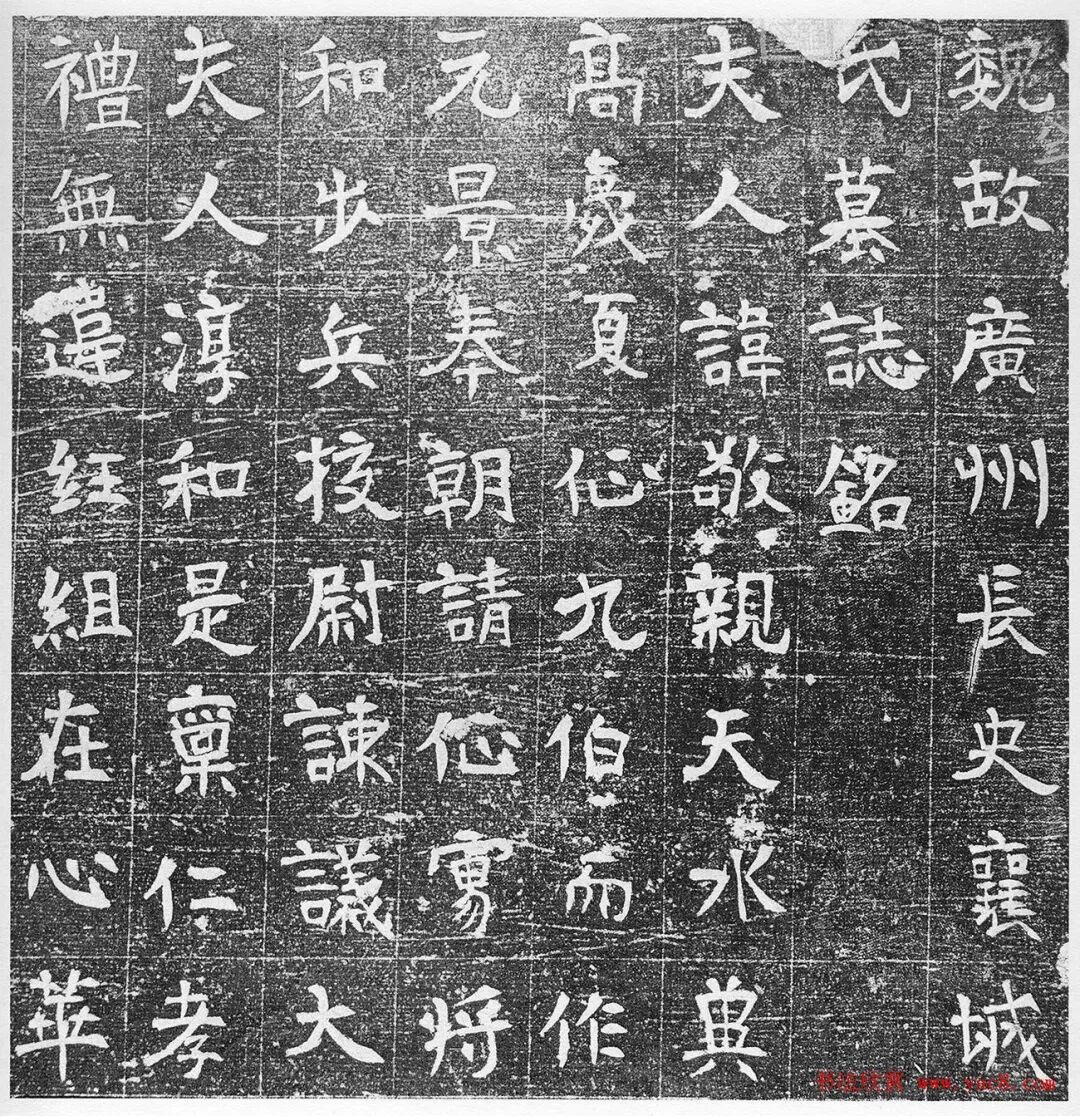 魏故廣州長史襄城
氏墓誌銘
夫人諱敬親天水冀
高歲夏伀九伯而作
元景奉朝請伀寧將
和步兵校尉諫議大
夫人淳和是稟仁孝
禮無違紝組在心華
www.yac8.com